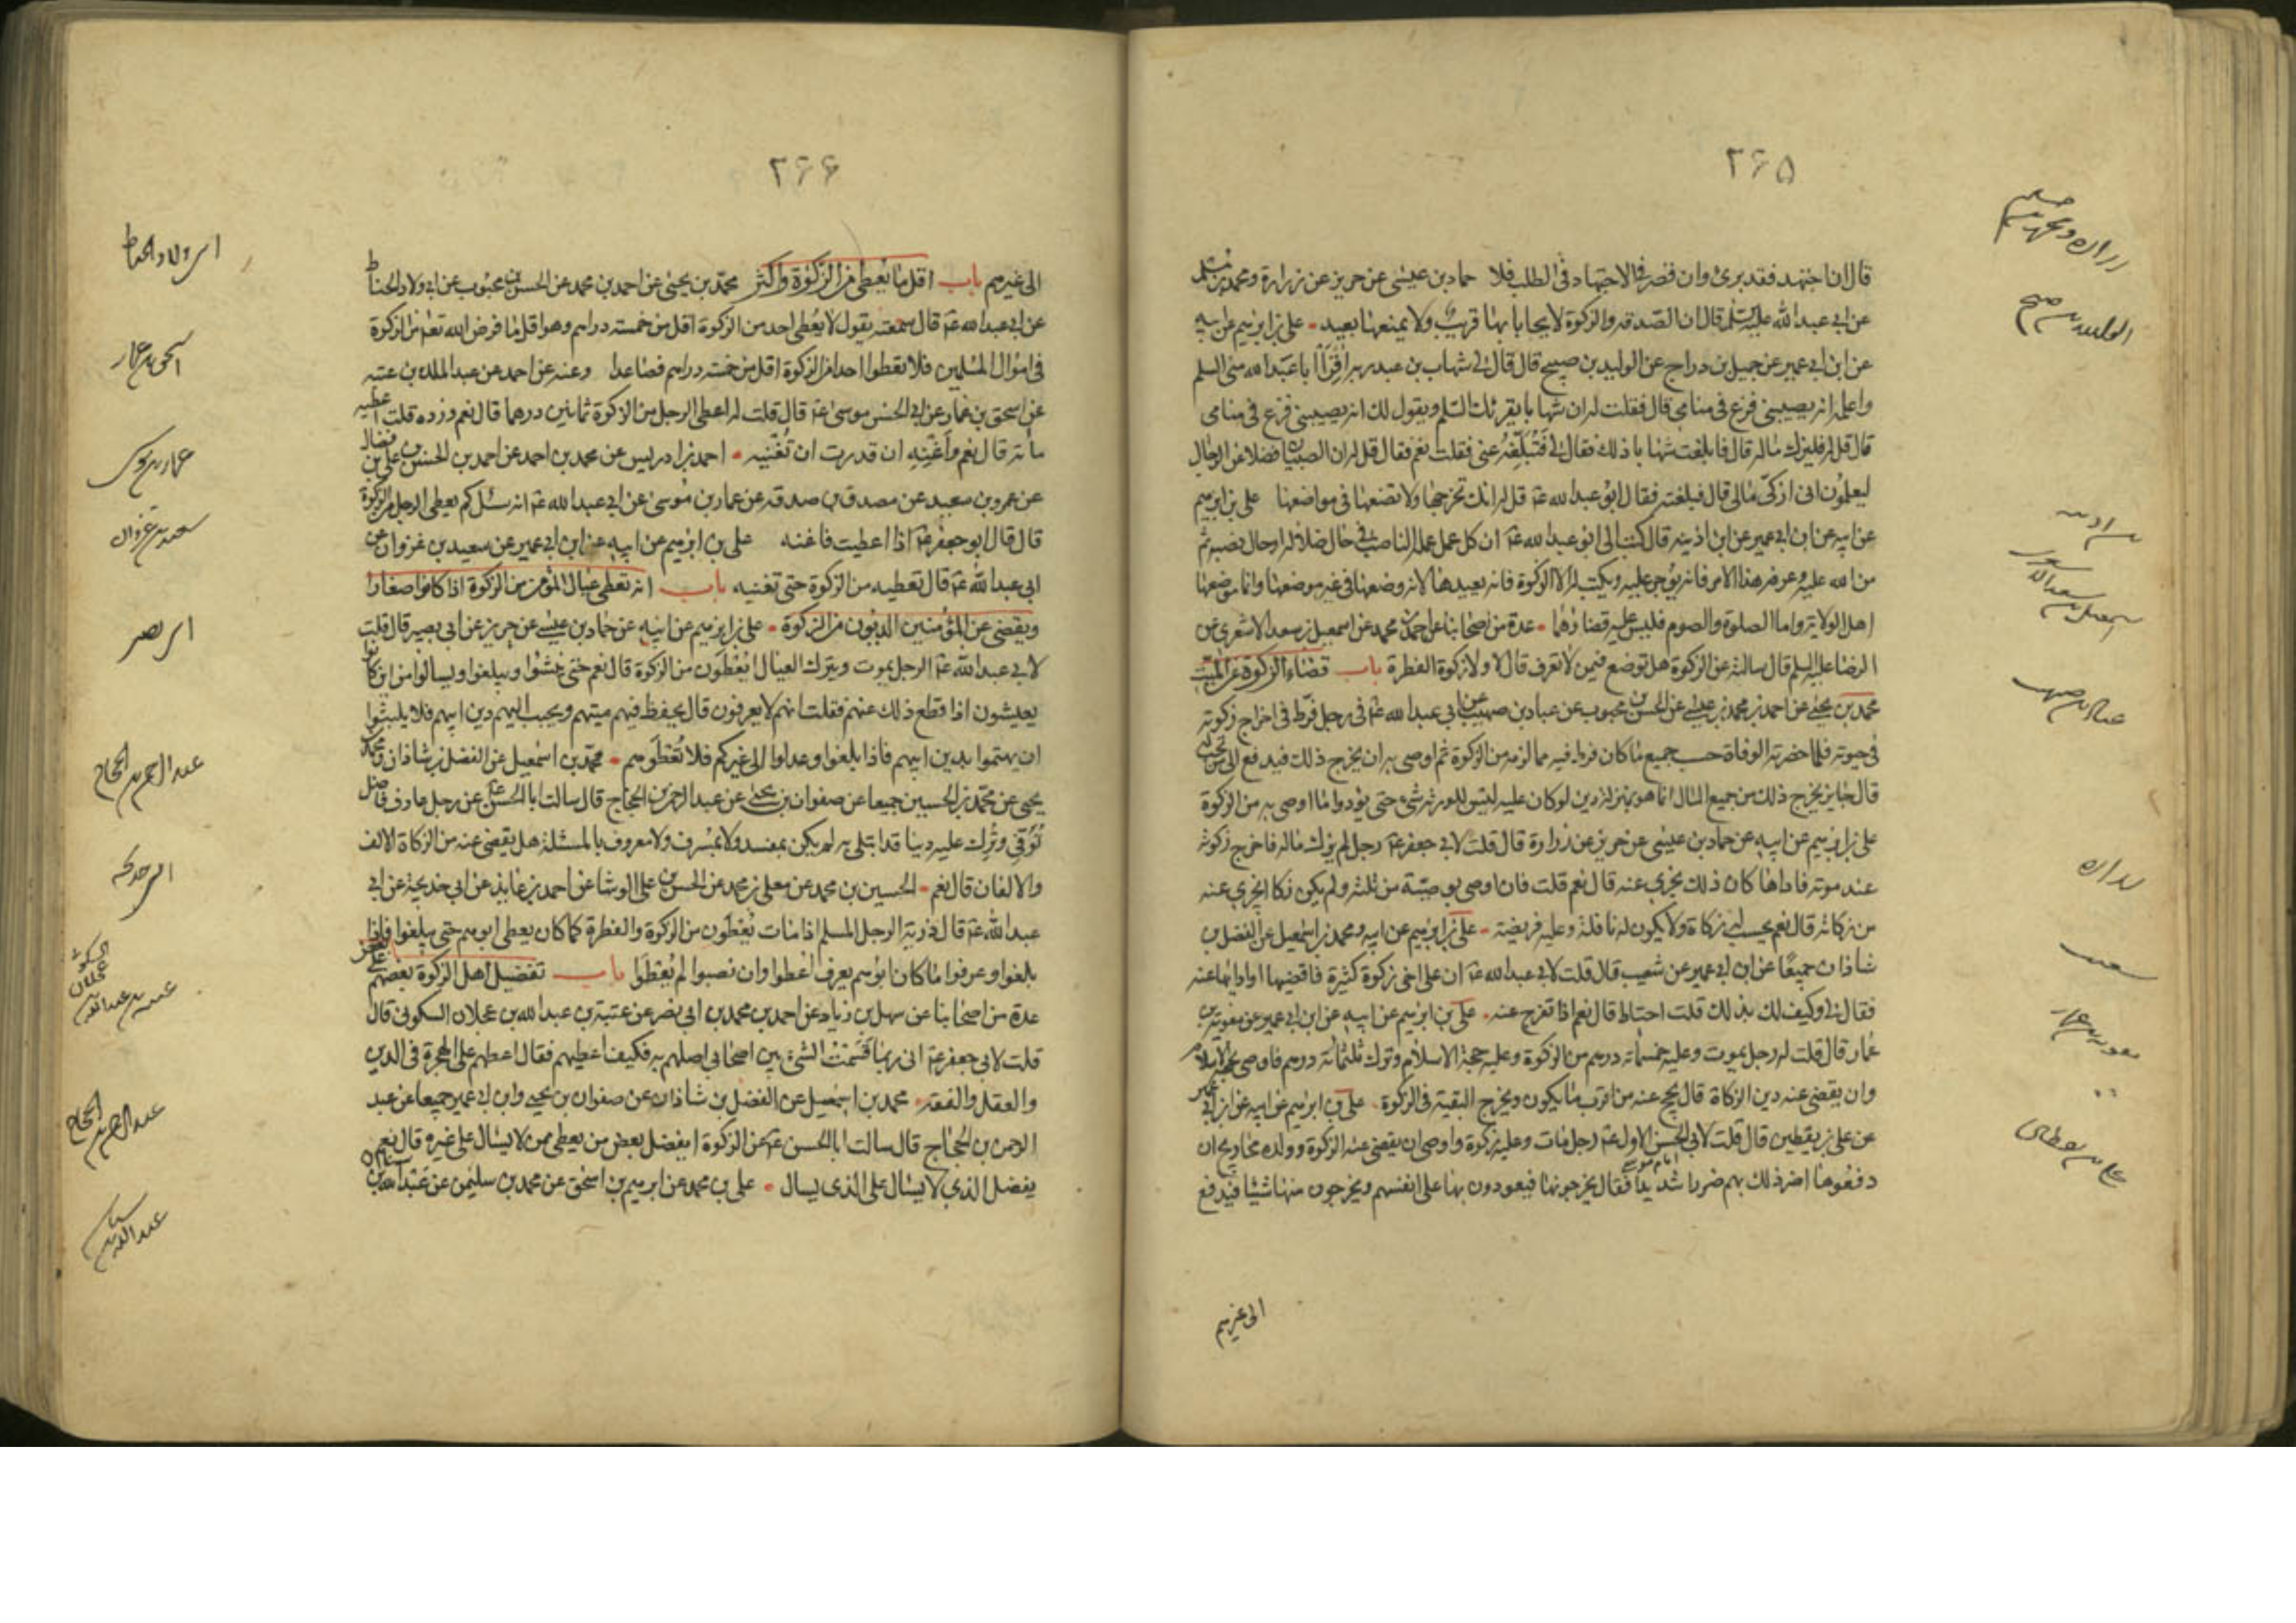 ٢۶۵
قال ان اجتهد فقد برئ وان قصر فی الاجتهاد فی الطلب فلا حماد بن عیسی عن حریز عن زرارة ومحمد بن مسلم
عن ابی عبد الله علیه السلم قال ان الصدقه والزکوة لا یحابا بها قریب ولا یمنعها بعید علی بن ابرهیم عن ابیه
عن ابن ابی عمیر عن جمیل بن دراج عن الولید بن صبیح قال قال لی شهاب بن عبد ربه اقرأ ابا عبد الله منی السلم
واعلمه انه یصیبنی فزع فی منامی قال فقلت له ان شهابا یقرئک السلم ویقول لک انه یصیبنی فزع فی منامی
قال قل له فلیزک ماله قال فابلغت شهابا ذلک فقال لی فتبلغه عنی فقلت نعم فقال قل له ان الصبیان فضلا عن الرجال
لیعلمون انی ازکی مالی قال فبلغته فقال ابو عبد الله عم قل له انک تخرجها ولا تضعها فی مواضعها علی بن ابرهیم
عن ابیه عن ابن ابی عمیر عن ابن اذینه قال کتب الی ابو عبد الله عم ان کل عمل عمله الناصب فی حال ضلاله او حال نصبه ثم
من الله علیه وعرفه هذا الامر فانه یؤجر علیه ویکتب له الا الزکوة فانه یعیدها لانه وضعها فی غیر موضعها وانما موضعها
اهل الولایة واما الصلوة والصوم فلیس علیه قضاؤهما عدة من اصحابنا عن احمد بن محمد عن اسمعیل بن سعد الاشعری عن
الرضا علیه السلم قال سالته عن الزکوة هل توضع فیمن لا تعرف قال لا ولا زکوة الفطرة باب قضاء الزکوة عن المیت
محمد بن یحیی عن احمد بن محمد بن عیسی عن الحسن بن محبوب عن عباد بن صهیب عن ابی عبد الله عم فی رجل فرط فی اخراج زکوته
فی حیوته فلما حضرته الوفاة حسب جمیع ما کان فرط فیه مما لزمه من الزکوة ثم اوصی به ان یخرج ذلک فیدفع الی من تجب له
قال جایز یخرج ذلک من جمیع المال انما هو بمنزلة دین لو کان علیه لیس للورثة شیء حتی یؤدوا ما اوصی به من الزکوة
علی بن ابرهیم عن ابیه عن حماد بن عیسی عن حریز عن زرارة قال قلت لابی جعفر عم رجل لم یزک ماله فاخرج زکوته
عند موته فاداها کان ذلک یجزی عنه قال نعم قلت فان اوصی بوصیة من ثلثه ولم یکن زکا ایجزی عنه
من زکاته قال نعم یحسب له زکاة ولا یکون له نافلة وعلیه فریضة علی بن ابرهیم عن ابیه ومحمد بن اسمعیل عن الفضل بن
شاذان جمیعا عن ابن ابی عمیر عن شعیب قال قلت لابی عبد الله عم ان علی اخی زکوة کثیرة فاقضیها او اوادیها عنه
فقال لی وکیف لک بذلک قلت احتاط قال نعم اذا تفرج عنه علی بن ابرهیم عن ابیه عن ابن ابی عمیر عن معویة بن
عمار قال قلت له رجل یموت وعلیه خمسمائة درهم من الزکوة وعلیه حجة الاسلام وترک ثلثمائة درهم فاوصی بحجة الاسلام
وان یقضی عنه دین الزکاة قال یحج عنه من اقرب ما یکون ویخرج البقیة فی الزکوة علی بن ابرهیم عن ابیه عن ابن ابی عمیر
عن علی بن یقطین قال قلت لابی الحسن الاول عم رجل مات وعلیه زکوة واوصی ان یقضی عنه الزکوة وولده محاویج ان
دفعوها اضر ذلک بهم ضررا شدیدا فقال یخرجونها فیعودون بها علی انفسهم ویخرجون منها شیئا فیدفع
الی غیرهم
زراره ومحمد بن مسلم
الولید بن صبیح
اسمعیل بن سعد الاشعری
عباد بن صهیب
زراره
شعیب
معویه بن عمار
علی بن یقطین
٢۶۶
الی غیرهم باب اقل ما یعطی من الزکوة واکثر محمد بن یحیی عن احمد بن محمد عن الحسن بن محبوب عن ابی ولاد الحناط
عن ابی عبد الله عم قال سمعته یقول لا یعطی احد من الزکوة اقل من خمسة دراهم وهو اقل ما فرض الله تعم من الزکوة
فی اموال المسلمین فلا تعطوا احدا من الزکوة اقل من خمسة دراهم فصاعدا وعنه عن احمد عن عبد الملک بن عتبه
عن اسحق بن عمار عن ابی الحسن موسی عم قال قلت له اعطی الرجل من الزکوة ثمانین درهما قال نعم وزده قلت اعطیه
مائة قال نعم واغنه ان قدرت ان تغنیه احمد بن ادریس عن محمد بن احمد عن احمد بن الحسن بن علی بن فضال
عن عمرو بن سعید عن مصدق بن صدقه عن عمار بن موسی عن ابی عبد الله عم انه سئل کم یعطی الرجل من الزکوة
قال قال ابو جعفر عم اذا اعطیت فاغنه علی بن ابرهیم عن ابیه عن ابن ابی عمیر عن سعید بن غزوان عن
ابی عبد الله عم قال تعطیه من الزکوة حتی تغنیه باب انه تعطی عیال المؤمن من الزکوة اذا کانوا صغارا
ویقضی عن المؤمنین الدیون من الزکوة علی بن ابرهیم عن ابیه عن حماد بن عیسی عن حریز عن ابی بصیر قال قلت
لابی عبد الله عم الرجل یموت ویترک العیال ایعطون من الزکوة قال نعم حتی ینشؤا ویبلغوا ویسالوا من این کانوا
یعیشون اذا قطع ذلک عنهم فقلت انهم لا یعرفون قال یحفظ فیهم میتهم ویحبب الیهم دین ابیهم فلا یلبثوا
ان یهتموا بدین ابیهم فاذا بلغوا وعدلوا الی غیرکم فلا تعطوهم محمد بن اسمعیل عن الفضل بن شاذان ومحمد بن
یحیی عن محمد بن الحسین جمیعا عن صفوان بن یحیی عن عبد الرحمن بن الحجاج قال سالت ابا الحسن عم عن رجل عارف فاضل
توفی وترک علیه دینا قد ابتلی به لم یکن بمفسد ولا بمسرف ولا معروف بالمسئلة هل یقضی عنه من الزکاة الالف
والالفان قال نعم الحسین بن محمد عن معلی بن محمد عن الحسن بن علی الوشا عن احمد بن عایذ عن ابی خدیجة عن ابی
عبد الله عم قال ذریة الرجل المسلم اذا مات یعطون من الزکوة والفطرة کما کان یعطی ابوهم حتی یبلغوا فاذا
بلغوا وعرفوا ما کان ابوهم یعرف اعطوا وان نصبوا لم یعطوا باب تفضیل اهل الزکوة بعضهم علی بعض
عدة من اصحابنا عن سهل بن زیاد عن احمد بن محمد بن ابی نصر عن عتبة بن عبد الله بن عجلان السکونی قال
قلت لابی جعفر عم انی ربما قسمت الشیء بین اصحابی اصلهم به فکیف اعطیهم فقال اعطهم علی الهجرة فی الدین
والعقل والفقه محمد بن اسمعیل عن الفضل بن شاذان عن صفوان بن یحیی وابن ابی عمیر جمیعا عن عبد
الرحمن بن الحجاج قال سالت ابا الحسن عم عن الزکوة ایفضل بعض من یعطی ممن لا یسال علی غیره قال نعم
یفضل الذی لا یسال علی الذی یسال علی بن محمد عن ابرهیم بن اسحق عن محمد بن سلیمن عن عبد الله بن
ابی ولاد الحناط
اسحق بن عمار
عمار بن موسی
سعید بن غزوان
ابی بصیر
عبد الرحمن بن الحجاج
ابی خدیجه
عبد الرحمن بن الحجاج
عبد الله بن سنان